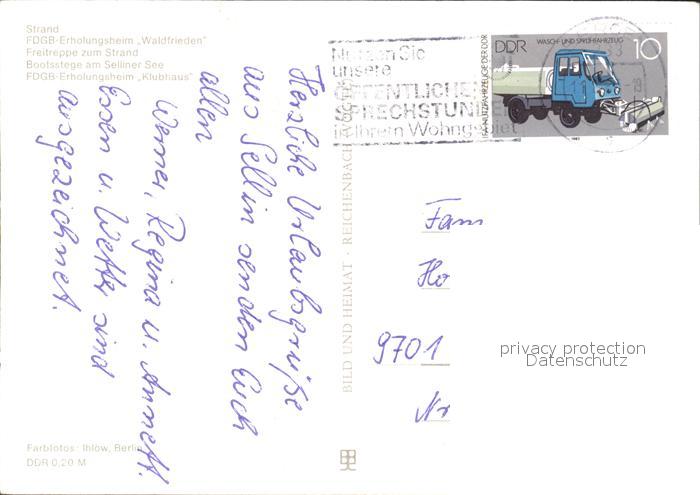 Strand
FDGB-Erholungsheim „Waldfrieden"
Freitreppe zum Strand
Bootsstege am Selliner See
FDGB-Erholungsheim „Klubhaus"
Herzliche Urlaubsgrüße
aus Sellin senden Euch
allen
Werner, Regina u. Annett.
Essen u. Wetter sind
ausgezeichnet.
Farbfotos: Ihlow, Berlin
DDR 0,20 M
BILD UND HEIMAT · REICHENBACH
Nutzen Sie
unsere
ÖFFENTLICHEN
SPRECHSTUNDEN
in Ihrem Wohngebiet
DDR
WASCH- UND SPRÜHFAHRZEUG
10
IFA-NUTZFAHRZEUGE DER DDR
Fam
Ho
9701
privacy protection
Datenschutz